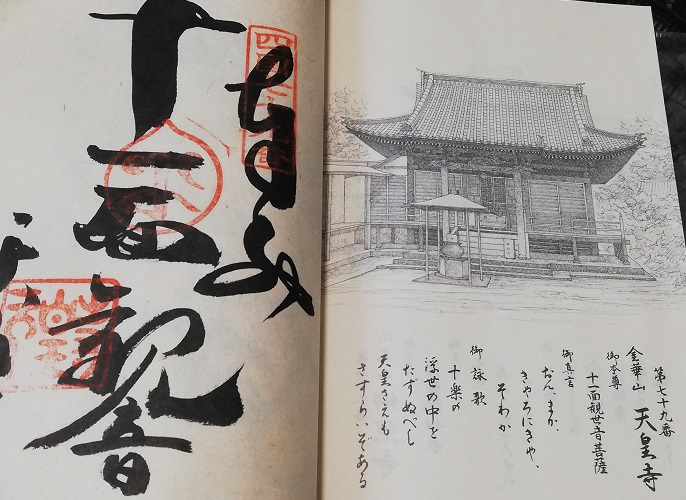 第七十九番
金華山 天皇寺
御本尊
十一面観世音菩薩
御真言
おん、まか、
きゃろにきゃ、
そわか
御詠歌
十楽の
浮世の中を
たずぬべし
天皇さえも
さすらいぞある
奉拝
十一面観音